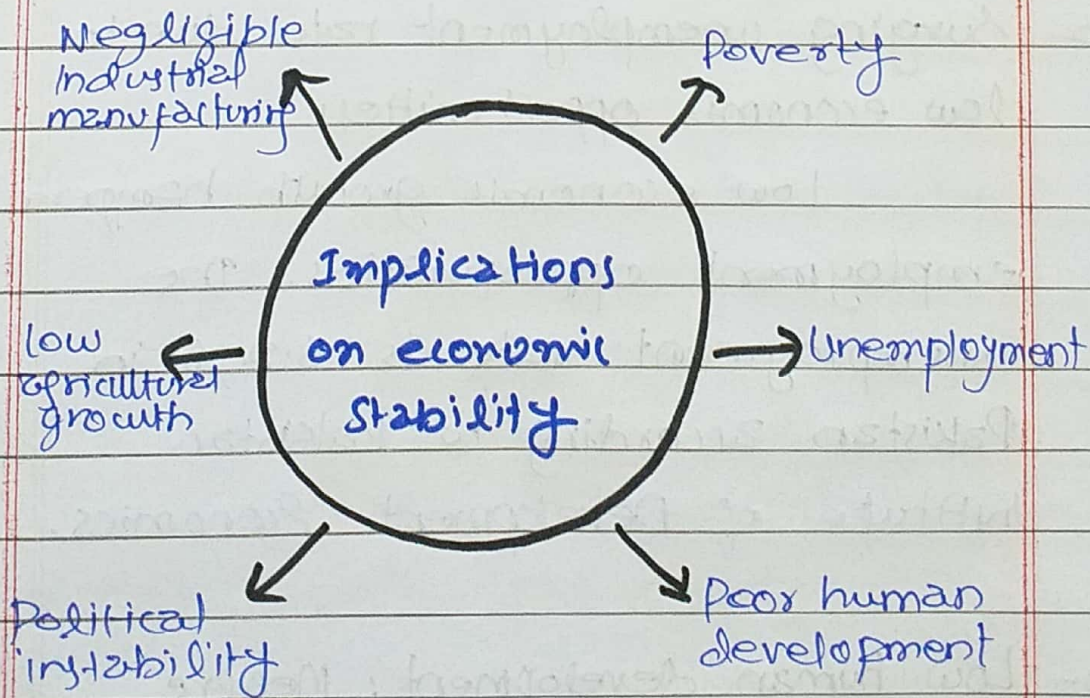 Negligible
industrial
manufacturing
Poverty
Implications
on economic
stability
low
agricultural
growth
Unemployment
Political
instability
Poor human
development